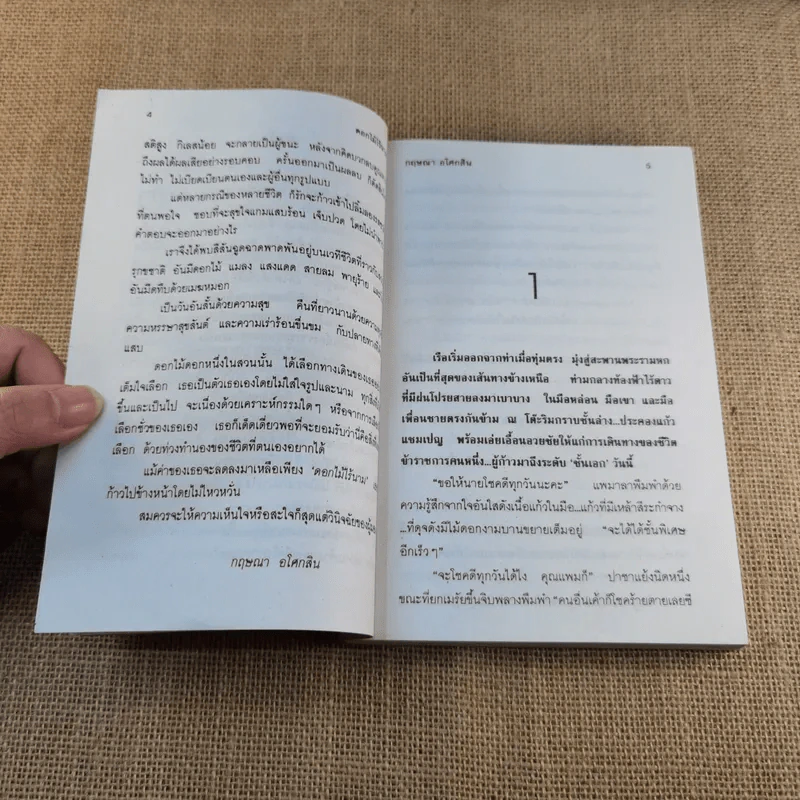 4
ดอกไม้ไร้
สติสูง กิเลสน้อย จะกลายเป็นผู้ชนะ หลังจากคิดบวกลบคูณ
ถึงผลได้ผลเสียอย่างรอบคอบ ครั้นออกมาเป็นผลลบ ก็
ไม่ทำ ไม่เบียดเบียนตนเองและผู้อื่นทุกรูปแบบ
แต่หลายกรณีของหลายชีวิต ก็รักจะก้าวเข้าไปลิ้มลอง
ที่ตนพอใจ ชอบที่จะสุขใจแกมแสบร้อน เจ็บปวด โดยไม่นำ
คำตอบจะออกมาอย่างไร
เราจึงได้พบสีสันฉูดฉาดพาดพันอยู่บนเวทีชีวิตที่
รุกขชาติ อันมีดอกไม้ แมลง แสงแดด สายลม พายุร้าย และ
อันมืดทึบด้วยเมฆหมอก
เป็นวันอันสั้นด้วยความสุข คืนที่ยาวนานด้วยความ
ความหรรษาสุขสันต์ และความเร่าร้อนขื่นขม กับปลายทาง
แสบ
ดอกไม้ดอกหนึ่งในสวนนั้น ได้เลือกทางเดินของเธอ
เต็มใจเลือก เธอเป็นตัวเธอเองโดยไม่ใส่ใจรูปและนาม ทุก
ขึ้นและเป็นไป จะเนื่องด้วยเคราะห์กรรมใดๆ หรือจากการ
เลือกชั่วของเธอเอง เธอก็เด็ดเดี่ยวพอที่จะยอมรับว่านี่คือ
เลือก ด้วยท่วงทำนองของชีวิตที่ตนเองอยากได้
แม้ค่าของเธอจะลดลงมาเหลือเพียง 'ดอกไม้ไร้นาม'
ก้าวไปข้างหน้าโดยไม่ไหวหวั่น
สมควรจะให้ความเห็นใจหรือสะใจก็สุดแต่วินิจฉัยของ
กฤษณา อโศกสิน
กฤษณา อโศกสิน 5
1
เรือเริ่มออกจากท่าเมื่อทุ่มตรง มุ่งสู่สะพานพระรามหก
อันเป็นที่สุดของเส้นทางข้างเหนือ ท่ามกลางท้องฟ้าไร้ดาว
ที่มีฝนโปรยสายลงมาเบาบาง ในมือหล่อน มือเขา และมือ
เพื่อนชายตรงกันข้าม ณ โต๊ะริมกราบชั้นล่าง...ประคองแก้ว
แชมเปญ พร้อมเอ่ยเอื้อนอวยชัยให้แก่การเดินทางของชีวิต
ข้าราชการคนหนึ่ง...ผู้ก้าวมาถึงระดับ 'ชั้นเอก' วันนี้
"ขอให้นายโชคดีทุกวันนะคะ" แพมาลาพึมพำด้วย
ความรู้สึกจากใจอันใสดังเนื้อแก้วในมือ...แก้วที่มีเหล้าสีระกำจาง
...ที่ดุจดังมีไม้ดอกงามบานขยายเต็มอยู่ "จะได้ได้ชั้นพิเศษ
อีกเร็วๆ"
"จะโชคดีทุกวันได้ไง คุณแพมก็" ปาชาแย้งนิดหนึ่ง
ขณะที่ยกเมรัยขึ้นจิบพลางพึมพำ "คนอื่นเค้าก็โชคร้ายตายเลยซี